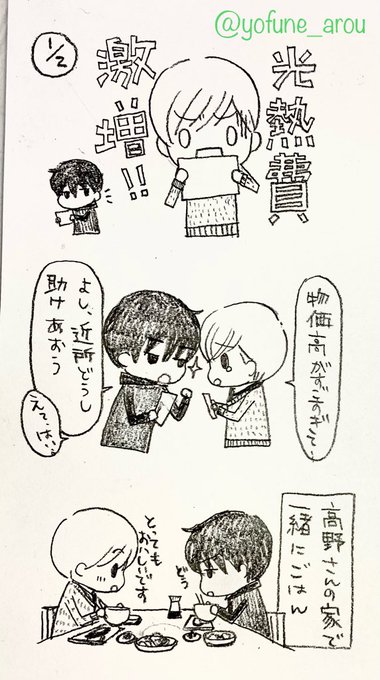 @yofune_arou
1/2
光熱費
激増!!
物価高がすごすぎて…
よし、近所どうし
助けあおう
えっ、はい
高野さんの家で
一緒にごはん
どう
とっても
おいしいです